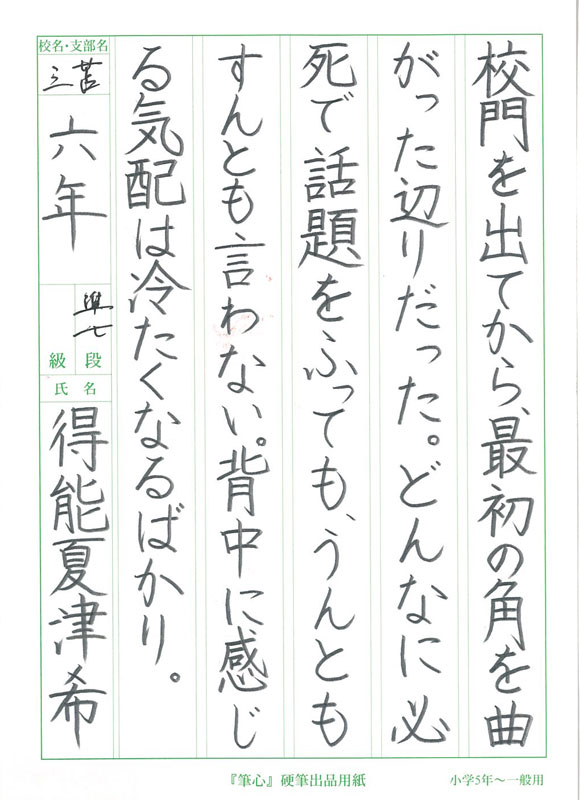 校門を出てから、最初の角を曲
がった辺りだった。どんなに必
死で話題をふっても、うんとも
すんとも言わない。背中に感じ
る気配は冷たくなるばかり。
校名・支部名
三苫
六年
準七
級段
氏名
得能夏津希
『筆心』硬筆出品用紙
小学5年〜一般用